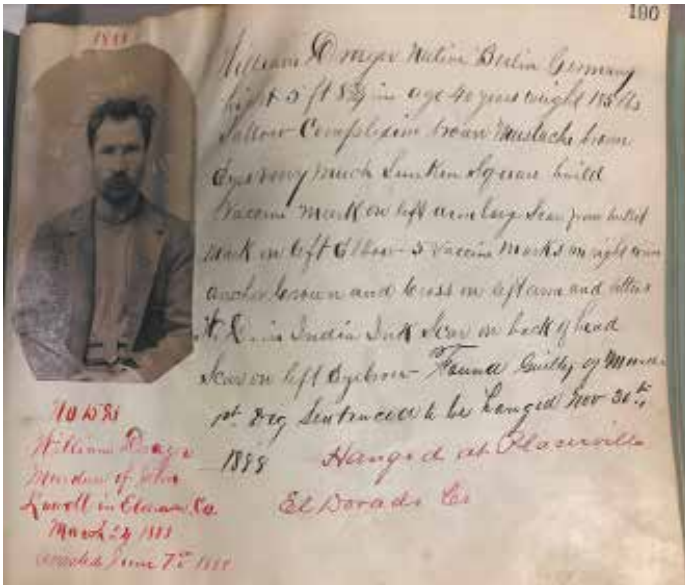 190
1888
William Drager Native Berlin Germany
hight 5 ft 8¾ in age 40 years weight 185 lbs
Sallow Complexion brown Mustache brown
Eyes very much Sunken Square build
Vaccine mark on left arm large Scar from bullet
Mark on left Elbow 5 Vaccine Marks on right arm
anchor Crown and Cross on left arm and letters
W. D. in India Ink Scar on back of head
Scar on left Eyebrow Found Guilty of Murder
1st Deg Sentenced to be hanged Nov 30th
1888 Hanged at Placerville
El Dorado Co
William Drager
Murder of John
Lowell in Co
March 24 1888
arrested June 7th 1888